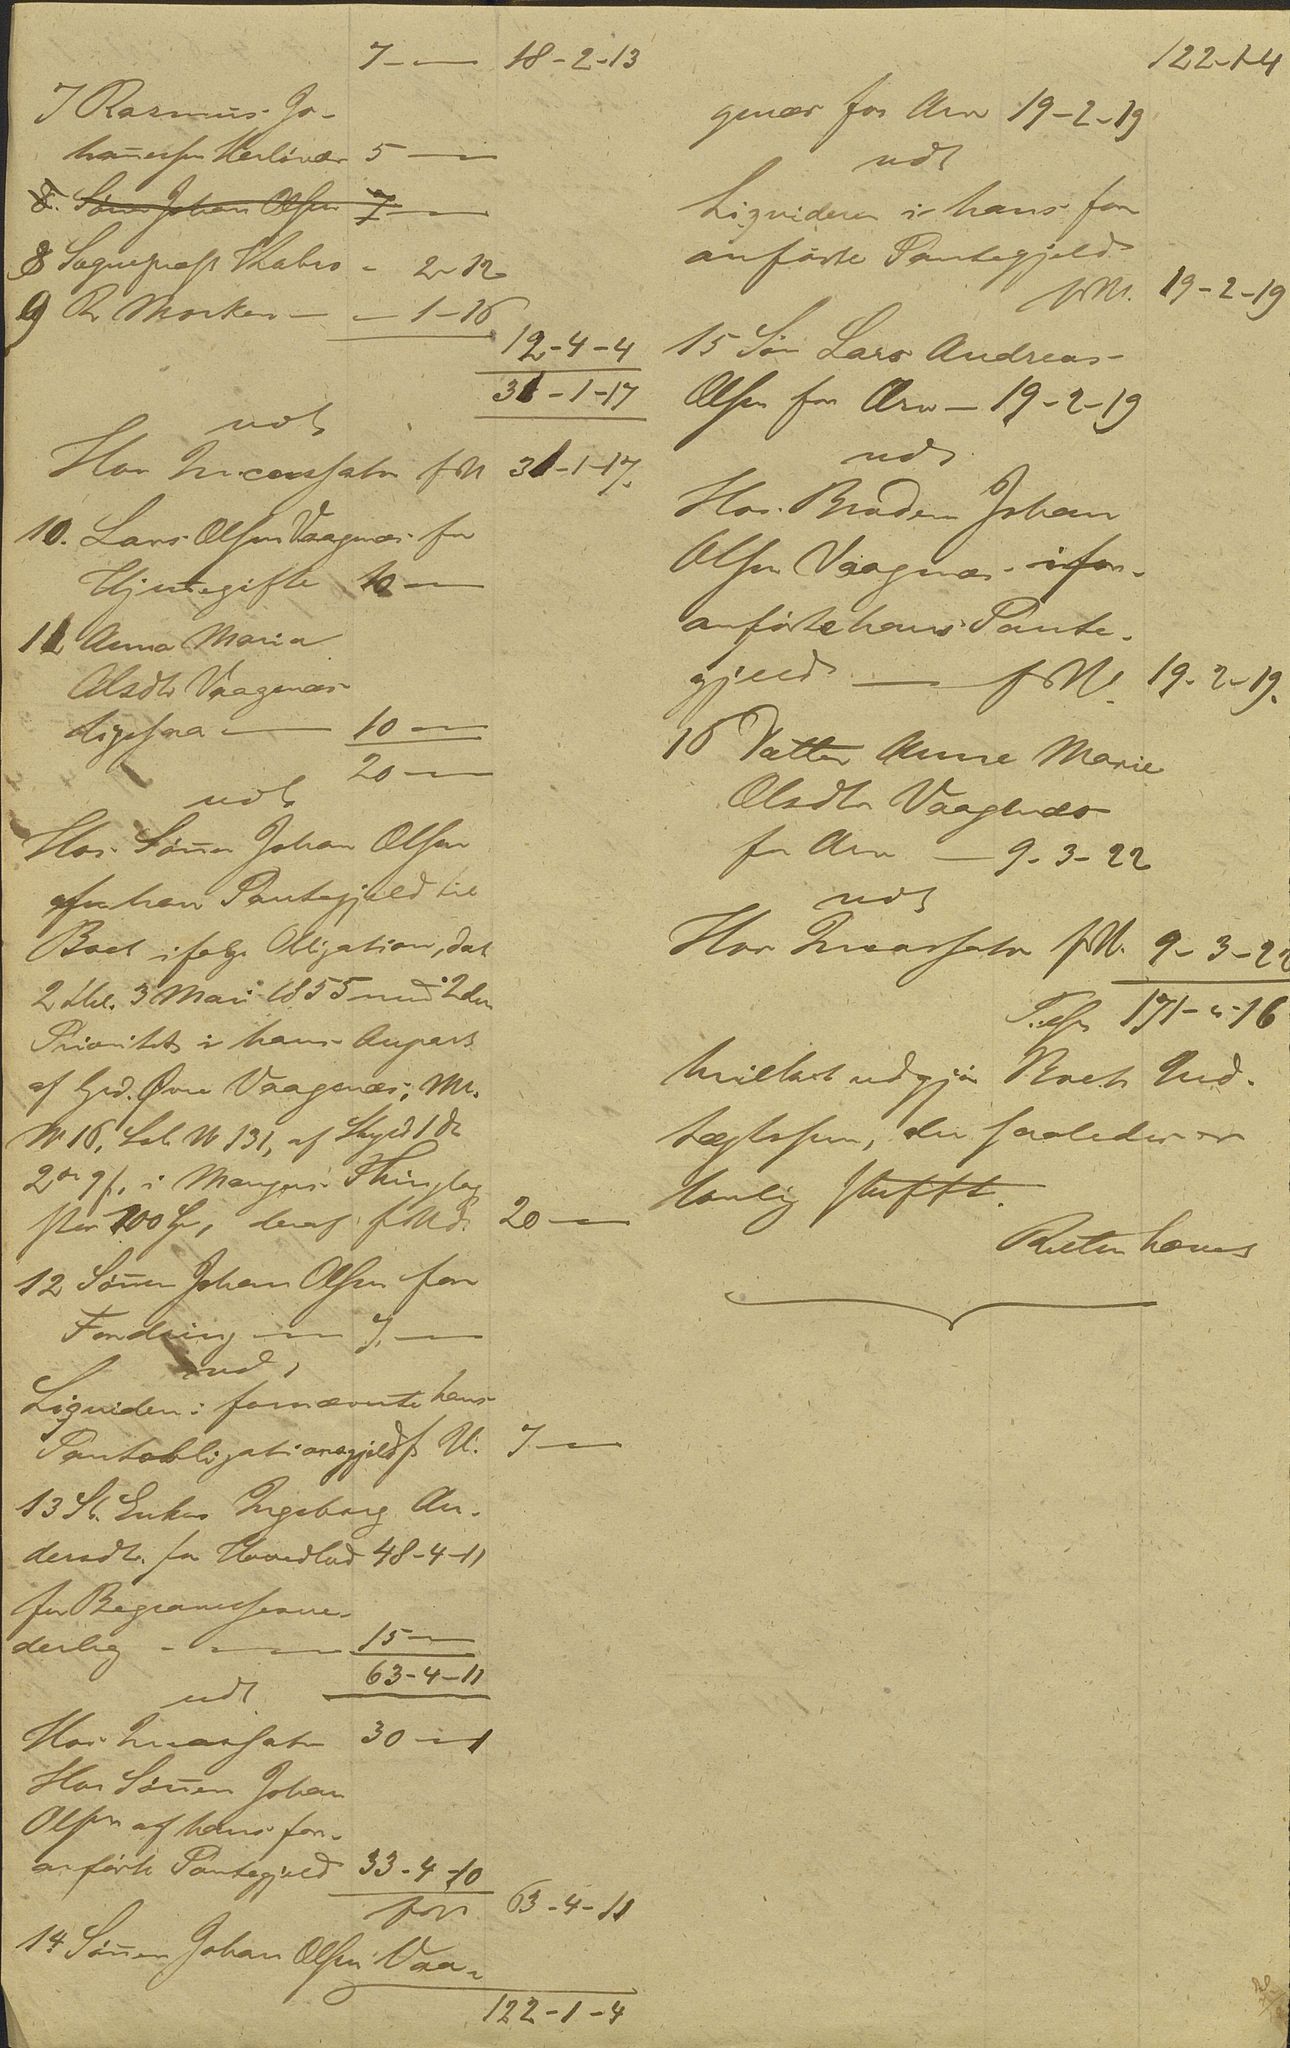 7 — 18-2-13
7 Rasmus Jo-
hannessen Herlövær 5 —
8. Sönnen Johan Olsen 7 —
8 Sogneprest - 2-12
9 R. Morken — — 1-16
12-4-4
31-1-17
udl
Hos Incassator f M 31-1-17.
10. Lars Olsen Vaagenæs for
Hjemmegifte 10 —
11 Anna Maria
Olsdtr Vaagenæs
ligesaa — 10 —
20 —
udl
Hos Sönnen Johan Olsen
af hans Pantegjeld til
Boet ifölge Obligation, dat
2 Mai 1855 med 2den
Prioritet i hans Anpart
af Grd. Övre Vaagenæs, Mr.
No 16, Lb No 131, af Skyld 1 dlr
2 ort 9 s, i Thinglag
stor 100 Spd, deraf 20 —
12 Sönnen Johan Olsen for
Fordring — 7 —
udl
Liqviden i fornævnte hans
Pantobligationsgjeld f M. 7 —
13 Sb. Enken Ingeborg An-
dersdtr. for Hovedlod 48-4-11
for Begravelsesve-
derlag - — 15 —
63-4-11
udl
Hos Incassator 30 — 1
Hos Sönnen Johan
Olsen af hans for-
anförte Pantegjeld 33-4-10
63-4-11
14 Sönnen Johan Olsen Vaa-
122-1-4
122-1-4
genæs for Arv 19-2-19
udl
Liqvideres i hans for
anförte Pantegjeld
19-2-19
15 Sön Lars Andreas
Olsen for Arv — 19-2-19
udl.
Hos Broderen Johan
Olsen Vaagenæs i for-
anförte hans Pante-
gjeld — 19-2-19.
16 Datter Anne Marie
Olsdtr Vaagenæs
for Arv — 9-3-22
udl
Hos Incassator 9-3-22
171-"-16
hvilket udgjör Boets Ind-
tægtssum, der saaledes er
lovlig skiftet.